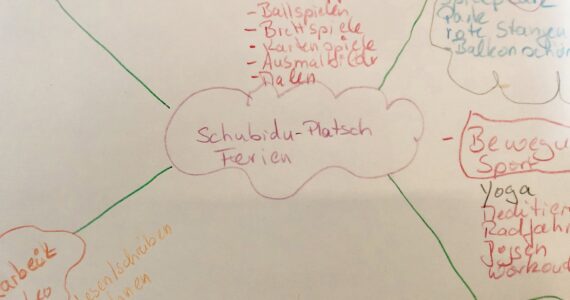 - Ballspielen
- Brettspiele
- Kartenspiele
- Ausmalbilder
- Malen
Parke
rote Stangen
- Balkonaction
Schubidu-Platsch
Ferien
- Bewegu
Sport
Yoga
Meditier
Radfahr
Joggen
Workout
arbeit
Lesen/schreiben